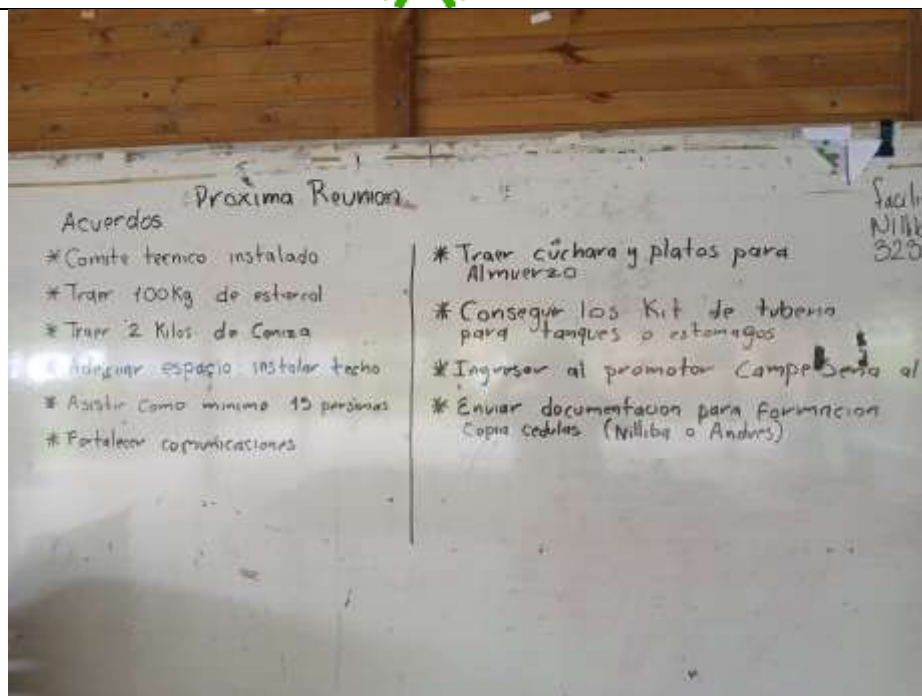 Proxima Reunion
Acuerdos
* Comite tecnico instalado
* Traer 100Kg de estiercol
* Traer 2 Kilos de Ceniza
* Adecuar espacio instalar techo
* Asistir como minimo 15 personas
* Fortalecer comunicaciones
* Traer cuchara y platos para
Almuerzo
* Conseguir los Kit de tuberia
para tanques o estomagos
* Ingresar al promotor Campe al
* Enviar documentacion para Formacion
Copia cedulas (Nilliba o Andres)
323